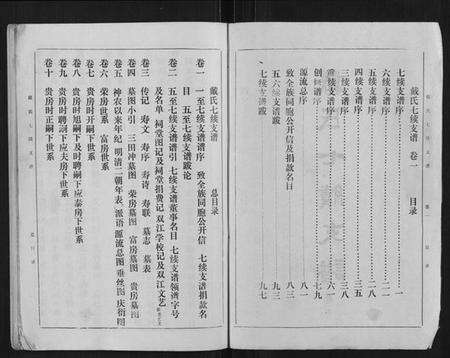 戴氏七续支谱 卷一 目录
七续支谱序 一
六续支谱序
五续支谱序 二八
四续支谱序 三五
三续支谱序 三八
创修谱序 七九
源流总序 八一
致全族同胞公开信及捐款名目 八三
五六续支谱跋 九三
七续支谱跋 九七
戴氏七续支谱 总目录
卷一 一至七续支谱谱序 致全族同胞公开信 七续支谱捐款名
目 五至七续支谱跋论
卷二 五至七续支谱谱引 七续支谱董事名目 七续支谱领谱字号
及名单 祠堂图记及祠堂捐费记 双江学校记及双江文艺
卷三 传记 寿文 寿序 寿诗 寿联 墓志 墓表
卷四 墓图小引 三田冲墓图 荣房墓图 富房墓图 贵房墓图
卷五 神农以来年纪 明清二朝年表 派语 源流总图 垂丝图 庆衍图
卷六 荣房世系 富房世系
卷七 贵房时开嗣下世系
卷八 贵房时旭嗣下及时聘嗣下应泰房下世系
卷九 贵房时聘嗣下应夫房下世系
卷十 贵房时正嗣下世系